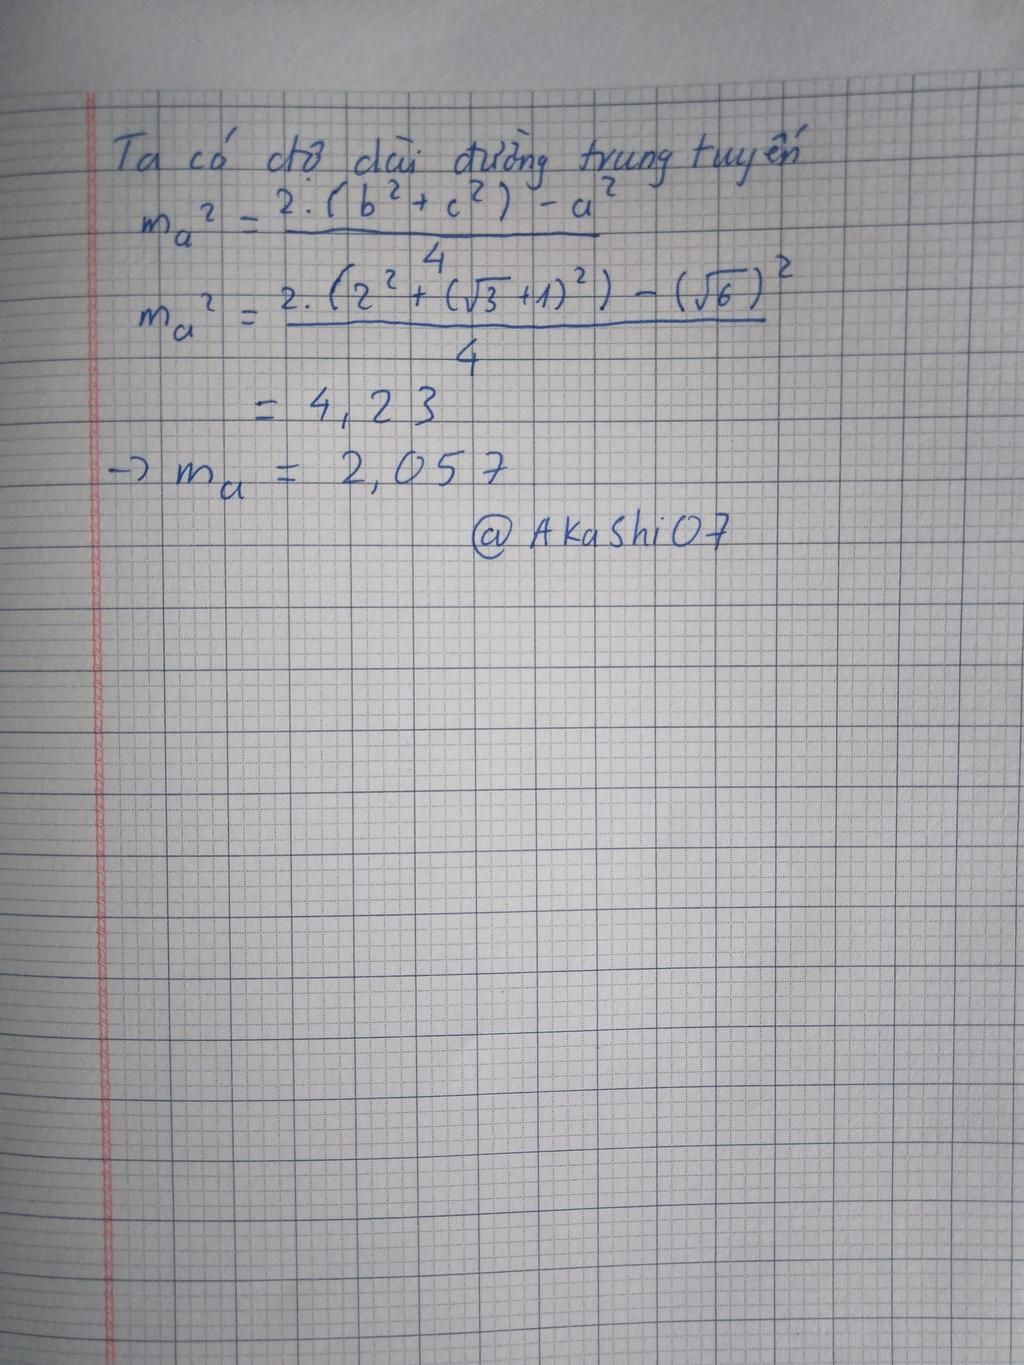 Ta có độ dài đường trung tuyến
mₐ² = (2.(b² + c²) - a²)/4
mₐ² = (2.(2² + (√3 + 1)²) - (√6)²)/4
= 4,23
-> mₐ = 2,057
@AKaShi07